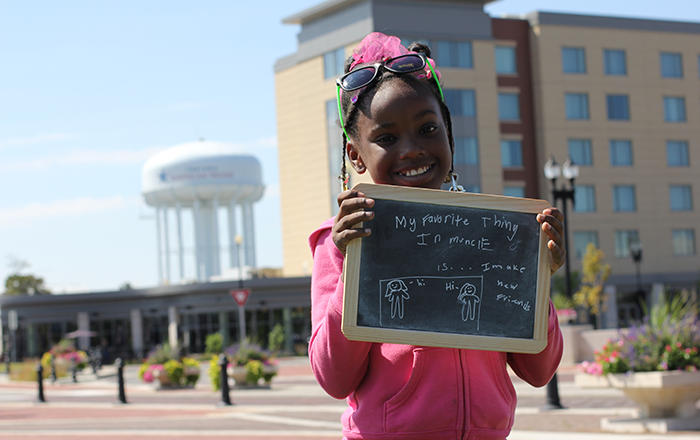 My favorite Thing
In muncie
is... I make
new
Friends
- hi
Hi -